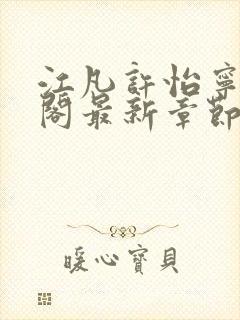 江凡許怡寧
閣最新章節
暖心寶貝